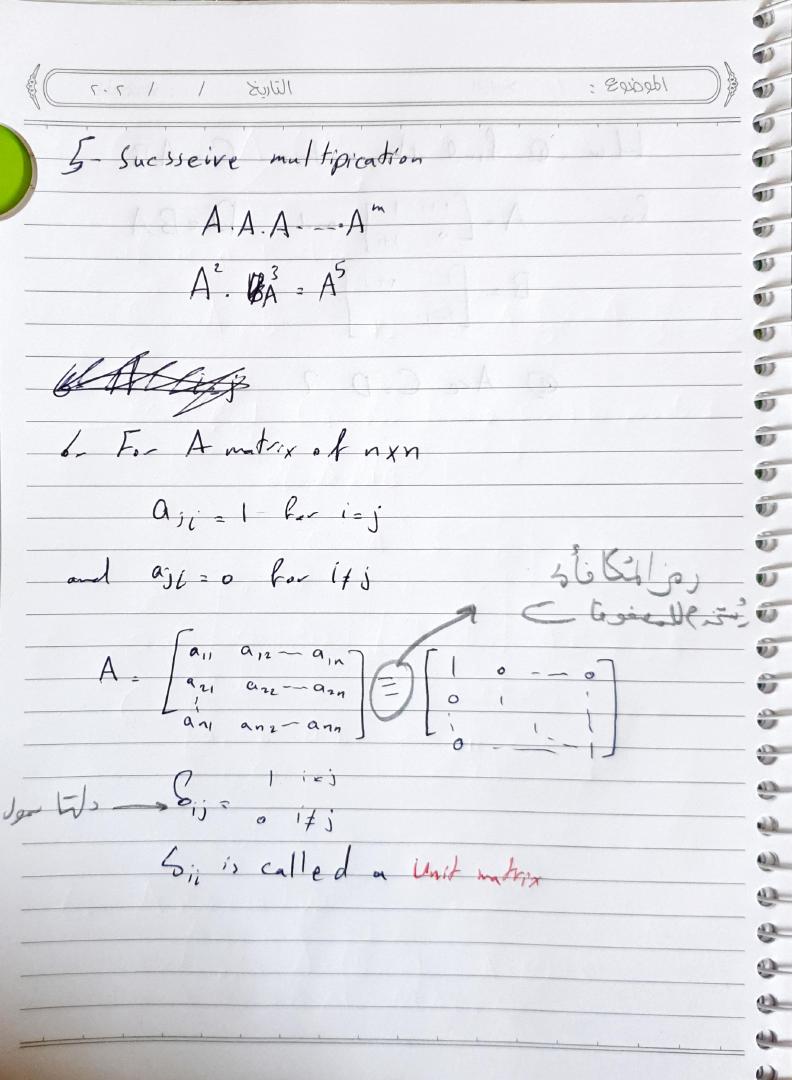 الموضوع :    التاريخ    /    /    ٢٠٢
5- Sucsseive multipication
A.A.A-----.A^m
A^2 . A^3 = A^5
6- For A matrix of n×n
a_ji = 1 for i=j
and a_ji = 0 for i≠j
رمز المتكافأة
يُستخدم للمصفوفات
A = [ a11 a12 — a1n ] ≡ [ 1 0 -- 0 ]
a21 a22 — a2n    0 1
an1 an2 — ann    0 --- 1
δij = 1 i=j
دلتا      0 i≠j
δij is called a unit matrix